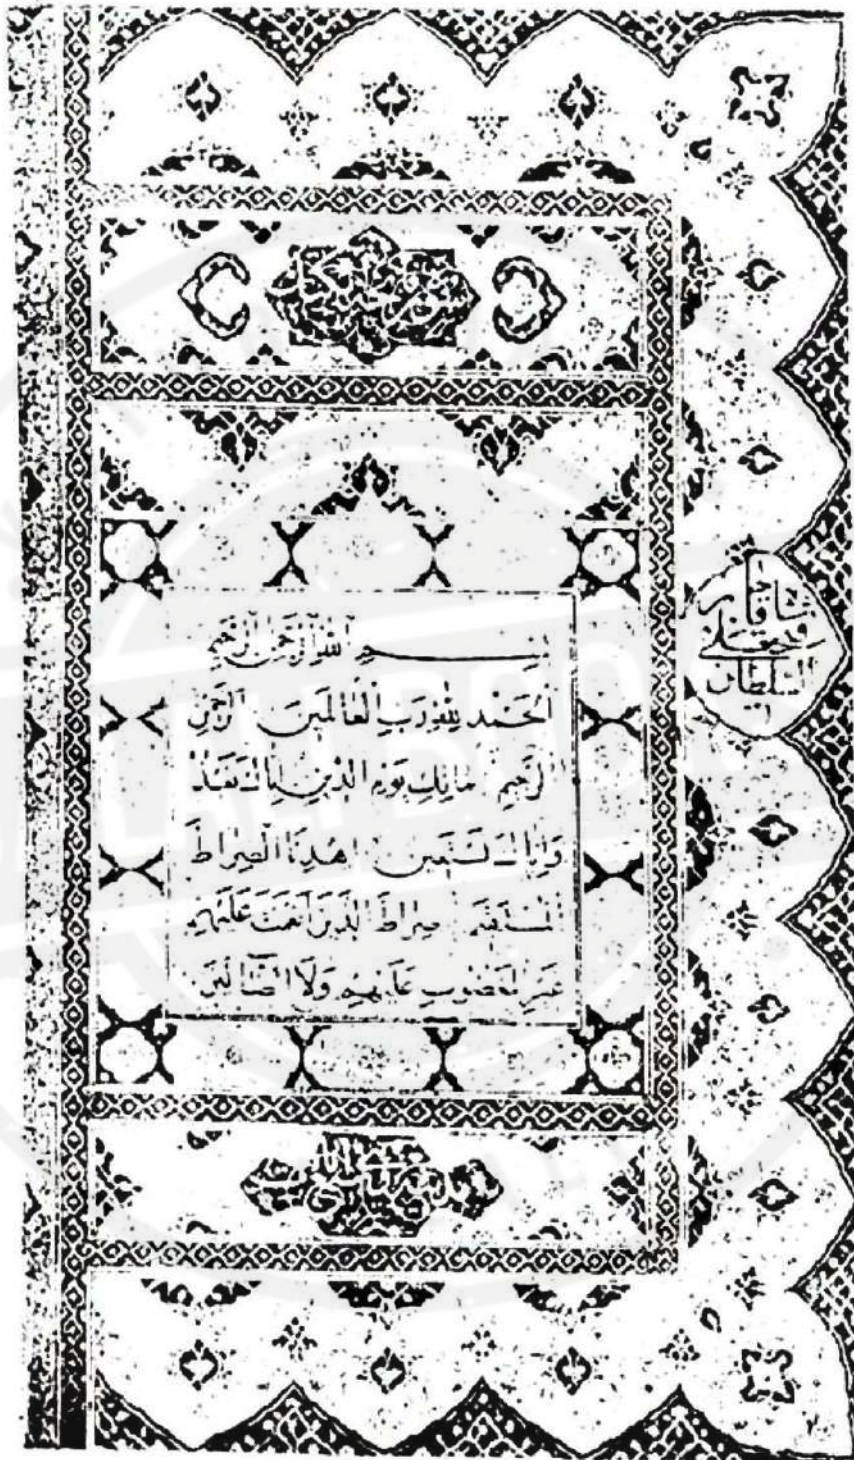 بسم الله الرحمن الرحيم
الحمد لله رب العالمين الرحمن
الرحيم مالك يوم الدين إياك نعبد
وإياك نستعين اهدنا الصراط
المستقيم صراط الذين أنعمت عليهم
غير المغضوب عليهم ولا الضالين
السلطان
فتحعلى
شاه قاجار